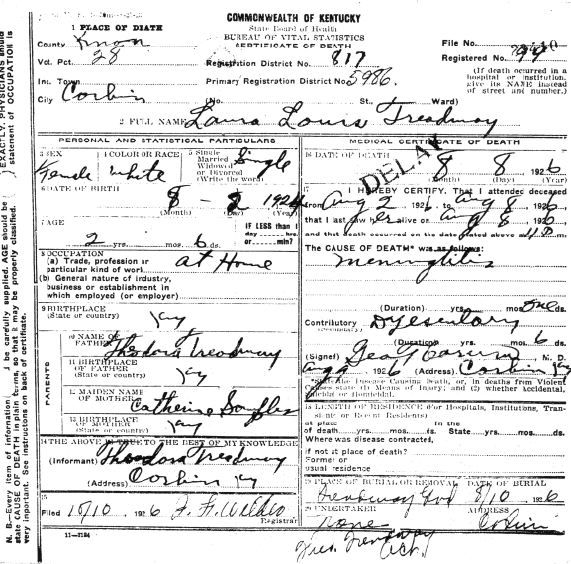 COMMONWEALTH OF KENTUCKY
1 PLACE OF DEATH
State Board of Health
BUREAU OF VITAL STATISTICS
CERTIFICATE OF DEATH
County Knox
File No.
Vot. Pct. 28
Registration District No. 817
Registered No. 99
Inc. Town
Primary Registration District No. 5986
(If death occurred in a hospital or institution, give its NAME instead of street and number.)
City Corbin (No. St., Ward)
2 FULL NAME Laura Louis Treadway
PERSONAL AND STATISTICAL PARTICULARS
MEDICAL CERTIFICATE OF DEATH
DELAY
3 SEX Female
4 COLOR OR RACE White
5 Single Married Widowed or Divorced (Write the word) Single
16 DATE OF DEATH 8 8 1926
(Month) (Day) (Year)
6 DATE OF BIRTH 8 - 2 1924
(Month) (Day) (Year)
17 I HEREBY CERTIFY, That I attended deceased
from Aug 2 1926, to Aug 8 1926
that I last saw her alive on Aug 8 1926
and that death occurred on the date stated above at
7 AGE
2 yrs. mos. 6 ds.
IF LESS than 1 day hrs. or min?
The CAUSE OF DEATH* was as follows:
Meningitis
8 OCCUPATION
(a) Trade, profession or particular kind of work At Home
(b) General nature of industry, business or establishment in which employed (or employer)
(Duration) yrs. mos. ds.
9 BIRTHPLACE
(State or country) Ky
Contributory Dysentary
(Duration) yrs. mos. 6 ds.
PARENTS
10 NAME OF FATHER Theodora Treadway
(Signed) Geo M. D.
1926 (Address) Corbin Ky
11 BIRTHPLACE OF FATHER (State or country) Ky
*State the Disease Causing Death, or, in deaths from Violent Causes State (1) Means of Injury; and (2) whether Accidental, Suicidal or Homicidal.
12 MAIDEN NAME OF MOTHER Catherine
18 LENGTH OF RESIDENCE (For Hospitals, Institutions, Transients or Recent Residents)
13 BIRTHPLACE OF MOTHER (State or country) Ky
At place of death yrs. mos. ds. In the State yrs. mos. ds.
Where was disease contracted, if not at place of death?
Former or usual residence
14 THE ABOVE IS TRUE TO THE BEST OF MY KNOWLEDGE
(Informant) Theodora Treadway
(Address) Corbin Ky
19 PLACE OF BURIAL OR REMOVAL DATE OF BURIAL
Treadway 8/10 1926
15
Filed 10/10 1926
Registrar
20 UNDERTAKER ADDRESS
None Corbin
11-2184
N. B.—Every item of information should be carefully supplied. AGE should be stated EXACTLY. PHYSICIANS should state CAUSE OF DEATH in plain terms, so that it may be properly classified. Exact statement of OCCUPATION is very important. See instructions on back of certificate.